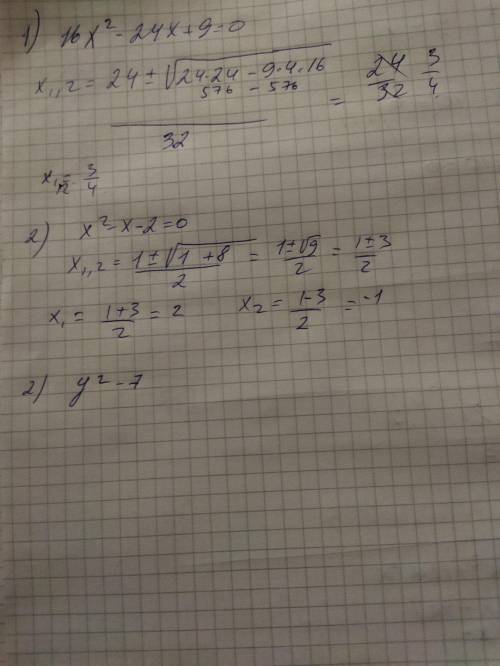 1) 16x² - 24x + 9 = 0
x₁,₂ = 24 ± √24·24 - 9·4·16 = 24 3
576 - 576
32 32 4
x₁,₂ = 3/4
2) x² - x - 2 = 0
x₁,₂ = 1 ± √1 + 8 / 2 = 1 ± √9 / 2 = 1 ± 3 / 2
x₁ = 1 + 3 / 2 = 2 x₂ = 1 - 3 / 2 = -1
2) y² - 7